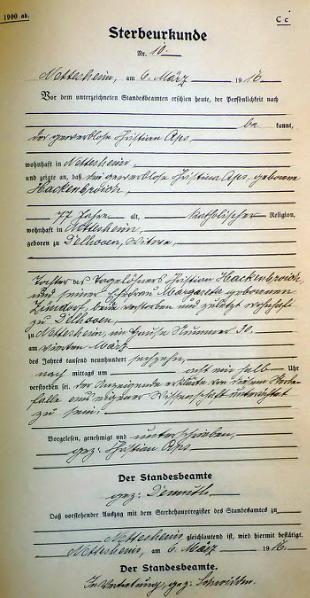 1900 ab.
C c
Sterbeurkunde
Nr. 10.
Nettersheim, am 6. März 1916.
Vor dem unterzeichneten Standesbeamten erschien heute, der Persönlichkeit nach
be kannt,
der gewerblose Christian Aps,
wohnhaft in Nettersheim,
und zeigte an, daß die gewerblose Christian Aps, geborene
Hackenbroich,
77 Jahre alt, katholischer Religion,
wohnhaft in Nettersheim,
geboren zu
Tochter des Tagelöhners Christian Hackenbroich
und seiner Ehefrau Margareta geborenen
beide verstorben und zuletzt wohnhaft
zu
zu Nettersheim, im Hause Nummer 30.
am vierten März
des Jahres tausend neunhundert sechzehn,
nach mittags um acht ein halb Uhr
verstorben sei. Der Anzeigende erklärte von diesem Sterbe-
falle aus eigener Wissenschaft unterrichtet
zu sein.
Vorgelesen, genehmigt und unterschrieben,
gez: Christian Aps
Der Standesbeamte
gez:
Daß vorstehender Auszug mit dem Sterbehauptregister des Standesamtes zu
Nettersheim gleichlautend ist, wird hiermit bestätigt.
Nettersheim, am 6. März 1916.
Der Standesbeamte.
In Vertretung, gez: